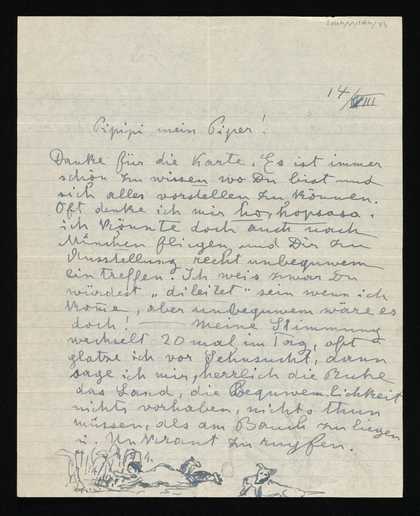 14/VIII
Pipipi mein Piper!
Danke für die Karte. Es ist immer
schön zu wissen wo Du bist und
sich alles vorstellen zu können.
Oft denke ich mir ho, hopsasa,
ich könnte doch auch nach
München fliegen und Dir zu
Ausstellung recht unbequem
eintreffen. Ich weis zwar Du
würdest „ dileitet" sein wenn ich
kome, aber unbequem wäre es
doch! — Meine Stimmung
wechselt 20 mal im Tag, oft
platze ich vor Sehnsucht, dann
sage ich mir, herrlich die Ruhe
das Land, die Bequwemlichkeit
nichts vorhaben, nichts thun
müssen, als am Bauch zu liegen
u. Unkraut zu rupfen.